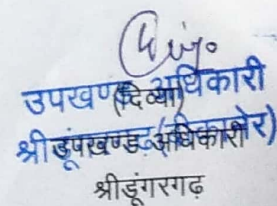 उपखण्ड अधिकारी
(दिव्या)
श्रीडूंगरगढ़ (बीकानेर)
उपखण्ड अधिकारी
श्रीडूंगरगढ़